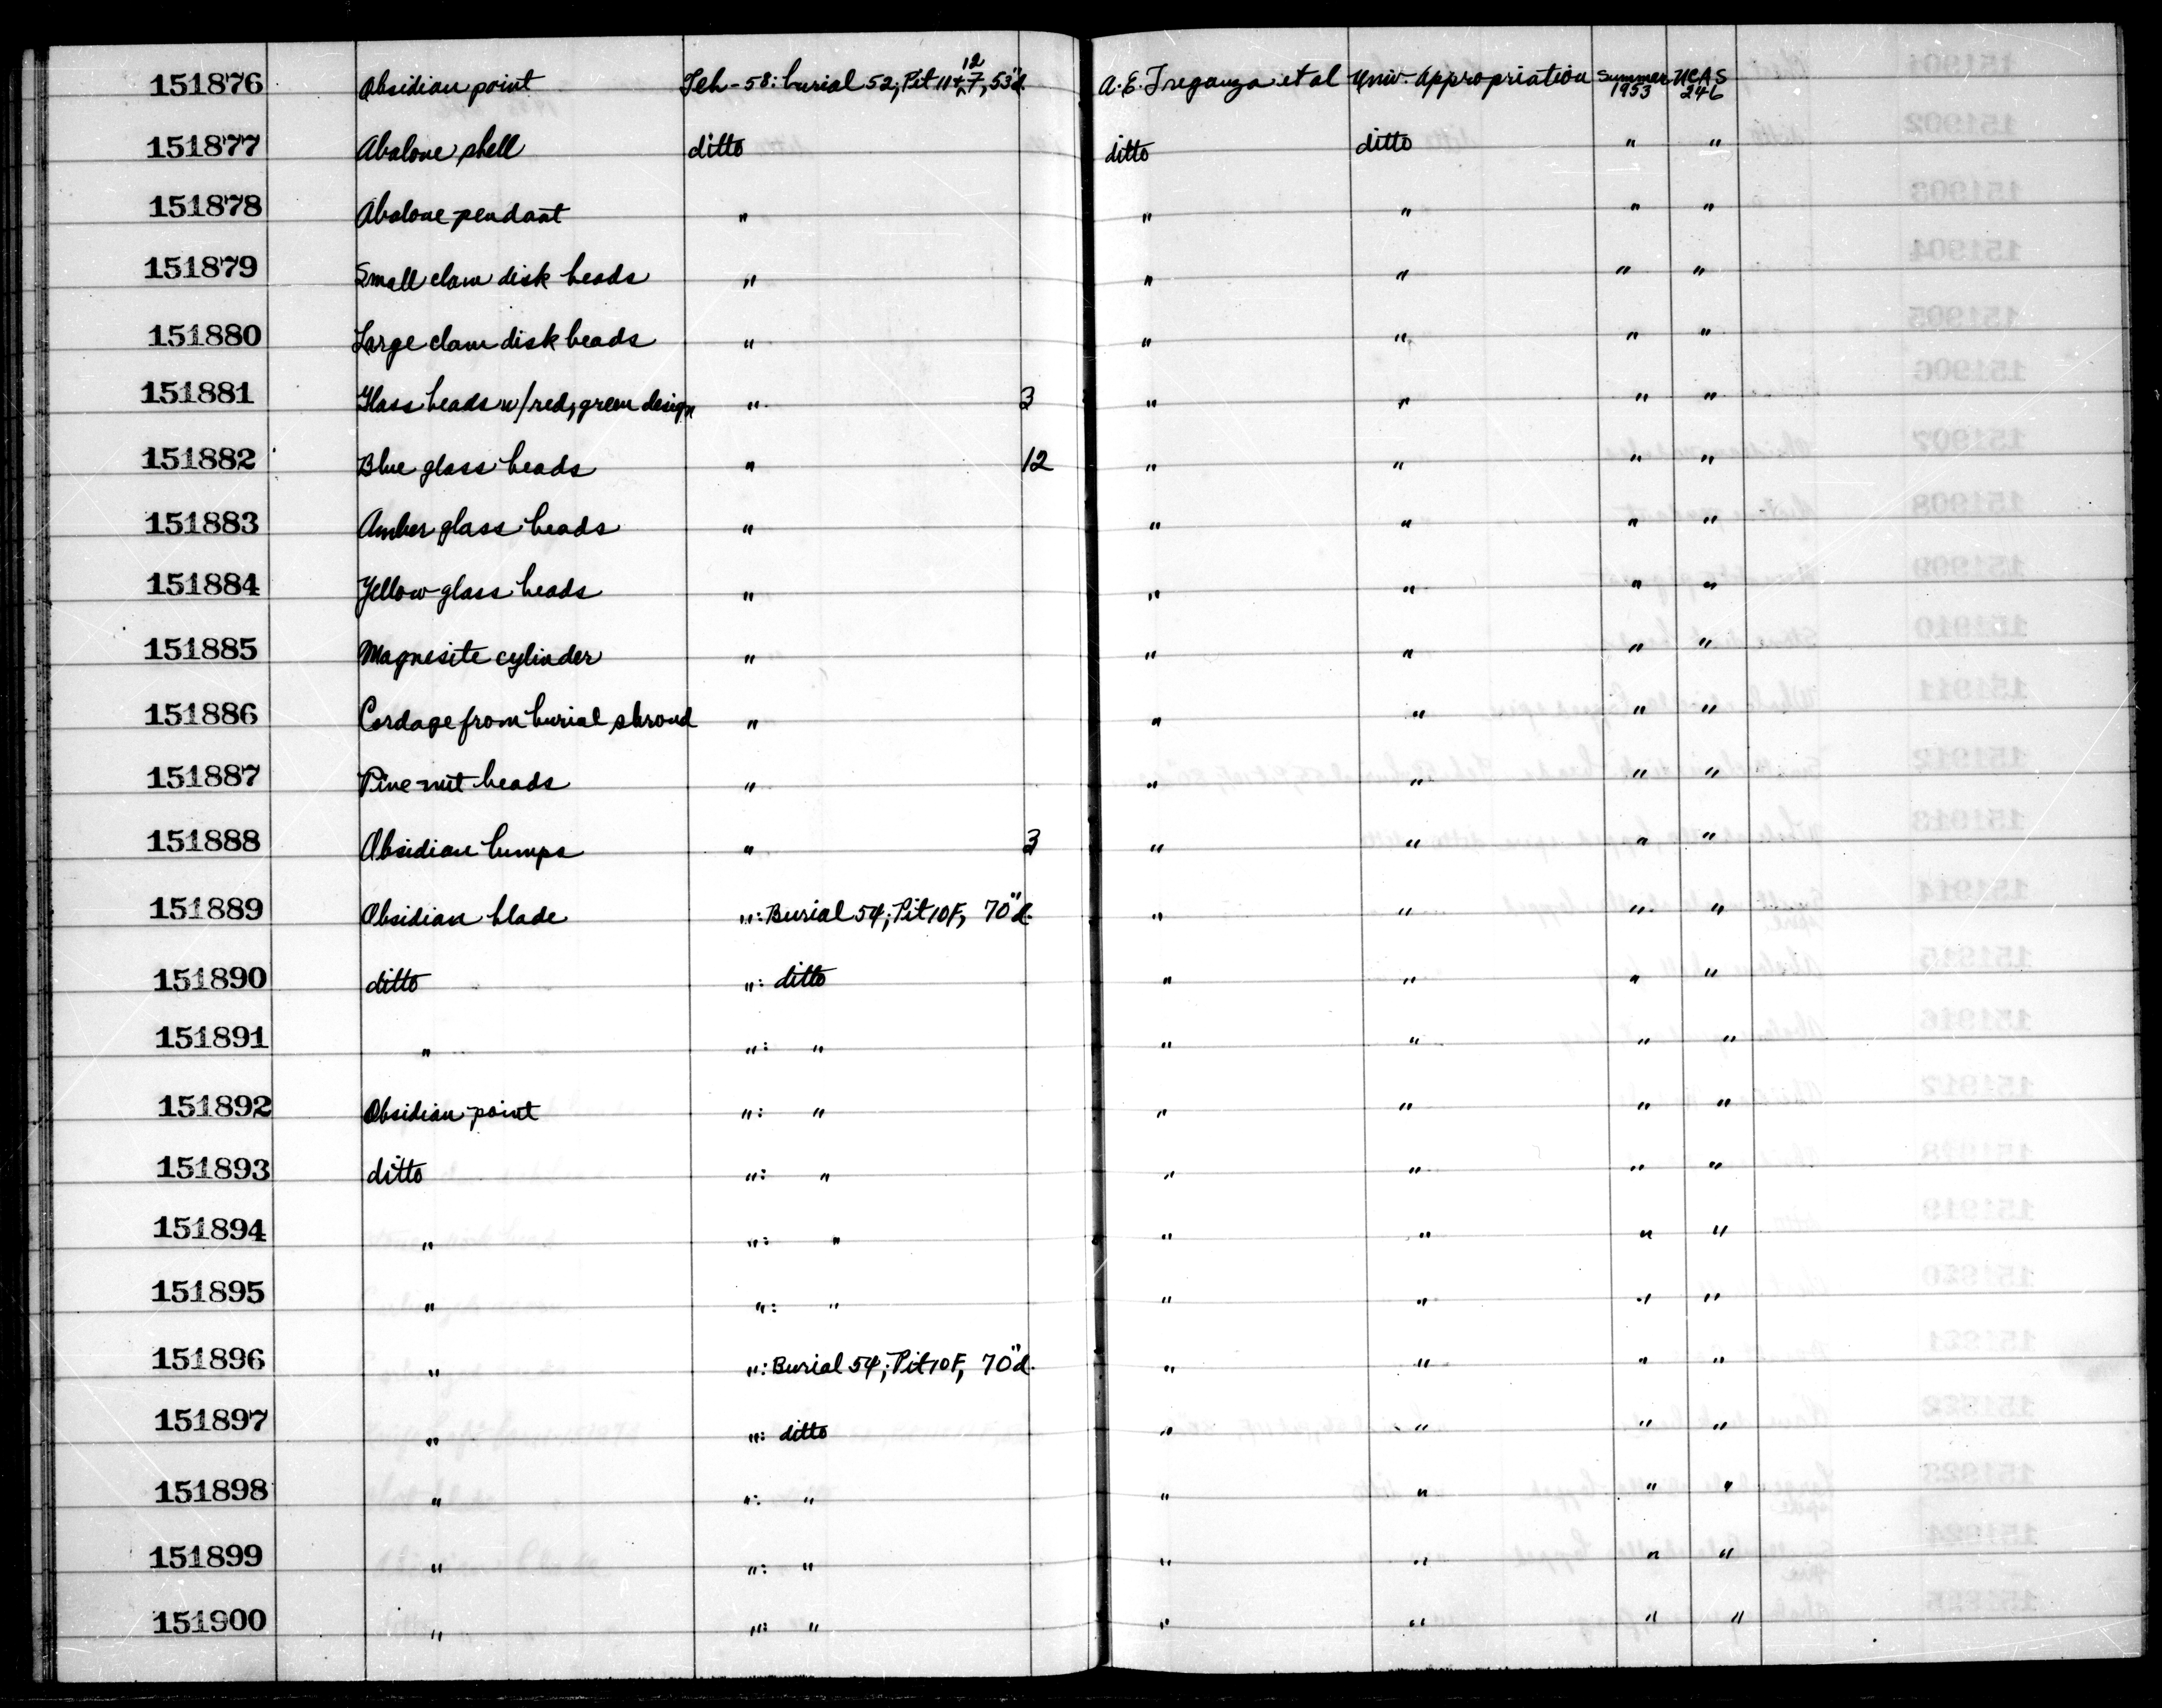 151876 Obsidian point Teh-58: burial 52, Pit 11+7, 12 53"d. A.E. Treganza et al Univ. Appropriation Summer 1953 UCAS 246
151877 Abalone shell ditto ditto ditto " "
151878 Abalone pendant " " " " "
151879 Small clam disk beads " " " " "
151880 Large clam disk beads " " " " "
151881 Glass beads w/red, green design " 3 " " " "
151882 Blue glass beads " 12 " " " "
151883 Amber glass beads " " " " "
151884 Yellow glass beads " " " " "
151885 Magnesite cylinder " " " " "
151886 Cordage from burial shroud " " " " "
151887 Pine-nut beads " " " " "
151888 Obsidian lumps " 3 " " " "
151889 Obsidian blade ": Burial 54; Pit 10F, 70"d. " " " "
151890 ditto ": ditto " " " "
151891 " ": " " " " "
151892 Obsidian point ": " " " " "
151893 ditto ": " " " " "
151894 " ": " " " " "
151895 " ": " " " " "
151896 " ": Burial 54; Pit 10F, 70"d. " " " "
151897 " ": ditto " " " "
151898 " ": " " " " "
151899 " ": " " " " "
151900 " ": " " " " "